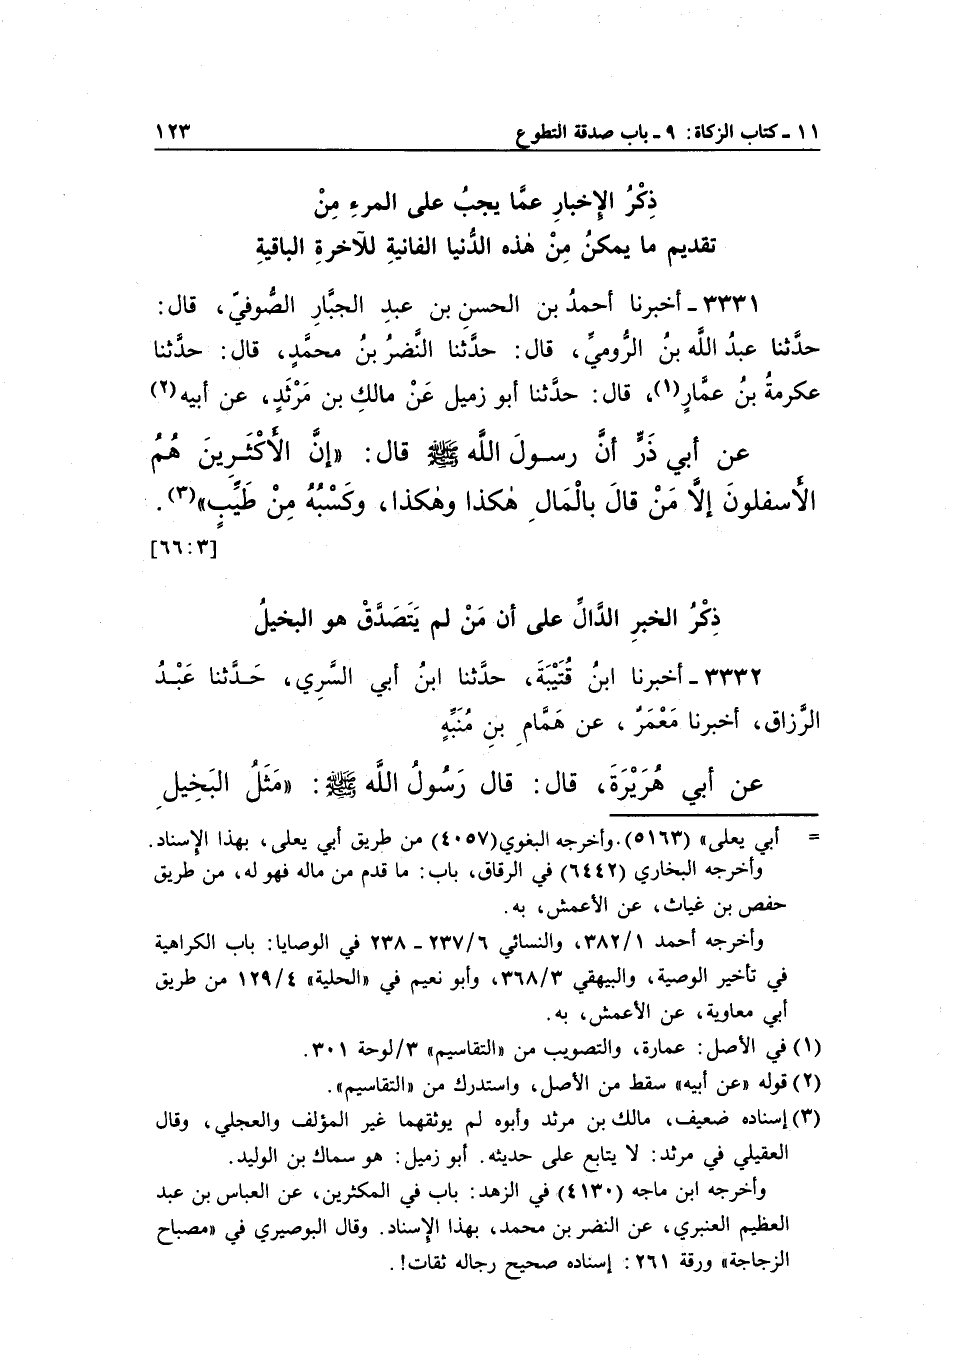 ١١ - كتاب الزكاة: ٩ - باب صدقة التطوع ١٢٣
ذِكْرُ الإِخبارِ عمَّا يجبُ على المرءِ مِنْ
تقديم ما يمكنُ مِنْ هٰذه الدُّنيا الفانيةِ للآخرةِ الباقيةِ
٣٣٣١ - أخبرنا أحمدُ بن الحسنِ بن عبدِ الجبَّارِ الصُّوفيّ، قال:
حدَّثنا عبدُ اللَّه بنُ الرُّوميِّ، قال: حدَّثنا النَّضرُ بنُ محمَّدٍ، قال: حدَّثنا
عكرمةُ بنُ عمَّارٍ(١)، قال: حدَّثنا أبو زميل عَنْ مالكِ بن مَرْثَدٍ، عن أبيه(٢)
عن أبي ذَرٍّ أنَّ رسولَ اللَّه ﷺ قال: «إنَّ الأَكْثَرِينَ هُمُ
الأَسفلونَ إلاَّ مَنْ قالَ بالْمَالِ هٰكذا وهٰكذا، وكَسْبُهُ مِنْ طَيِّبٍ»(٣).
[٦٦:٣]
ذِكْرُ الخبرِ الدَّالِّ على أن مَنْ لم يَتَصَدَّقْ هو البخيلُ
٣٣٣٢ - أخبرنا ابنُ قُتَيْبَةَ، حدَّثنا ابنُ أبي السَّرِي، حَدَّثنا عَبْدُ
الرَّزاق، أخبرنا مَعْمَرٌ، عن هَمَّامِ بنِ مُنَبِّهٍ
عن أبي هُرَيْرَةَ، قال: قال رَسُولُ اللَّه ﷺ: «مَثَلُ البَخِيلِ
= أبي يعلى» (٥١٦٣). وأخرجه البغوي(٤٠٥٧) من طريق أبي يعلى، بهذا الإِسناد.
وأخرجه البخاري (٦٤٤٢) في الرقاق، باب: ما قدم من ماله فهو له، من طريق
حفص بن غياث، عن الأعمش، به.
وأخرجه أحمد ٣٨٢/١، والنسائي ٢٣٧/٦ - ٢٣٨ في الوصايا: باب الكراهية
في تأخير الوصية، والبيهقي ٣٦٨/٣، وأبو نعيم في «الحلية» ١٢٩/٤ من طريق
أبي معاوية، عن الأعمش، به.
(١) في الأصل: عمارة، والتصويب من «التقاسيم» ٣/لوحة ٣٠١.
(٢) قوله «عن أبيه» سقط من الأصل، واستدرك من «التقاسيم».
(٣) إسناده ضعيف، مالك بن مرثد وأبوه لم يوثقهما غير المؤلف والعجلي، وقال
العقيلي في مرثد: لا يتابع على حديثه. أبو زميل: هو سماك بن الوليد.
وأخرجه ابن ماجه (٤١٣٠) في الزهد: باب في المكثرين، عن العباس بن عبد
العظيم العنبري، عن النضر بن محمد، بهذا الإِسناد. وقال البوصيري في «مصباح
الزجاجة» ورقة ٢٦١: إسناده صحيح رجاله ثقات!.